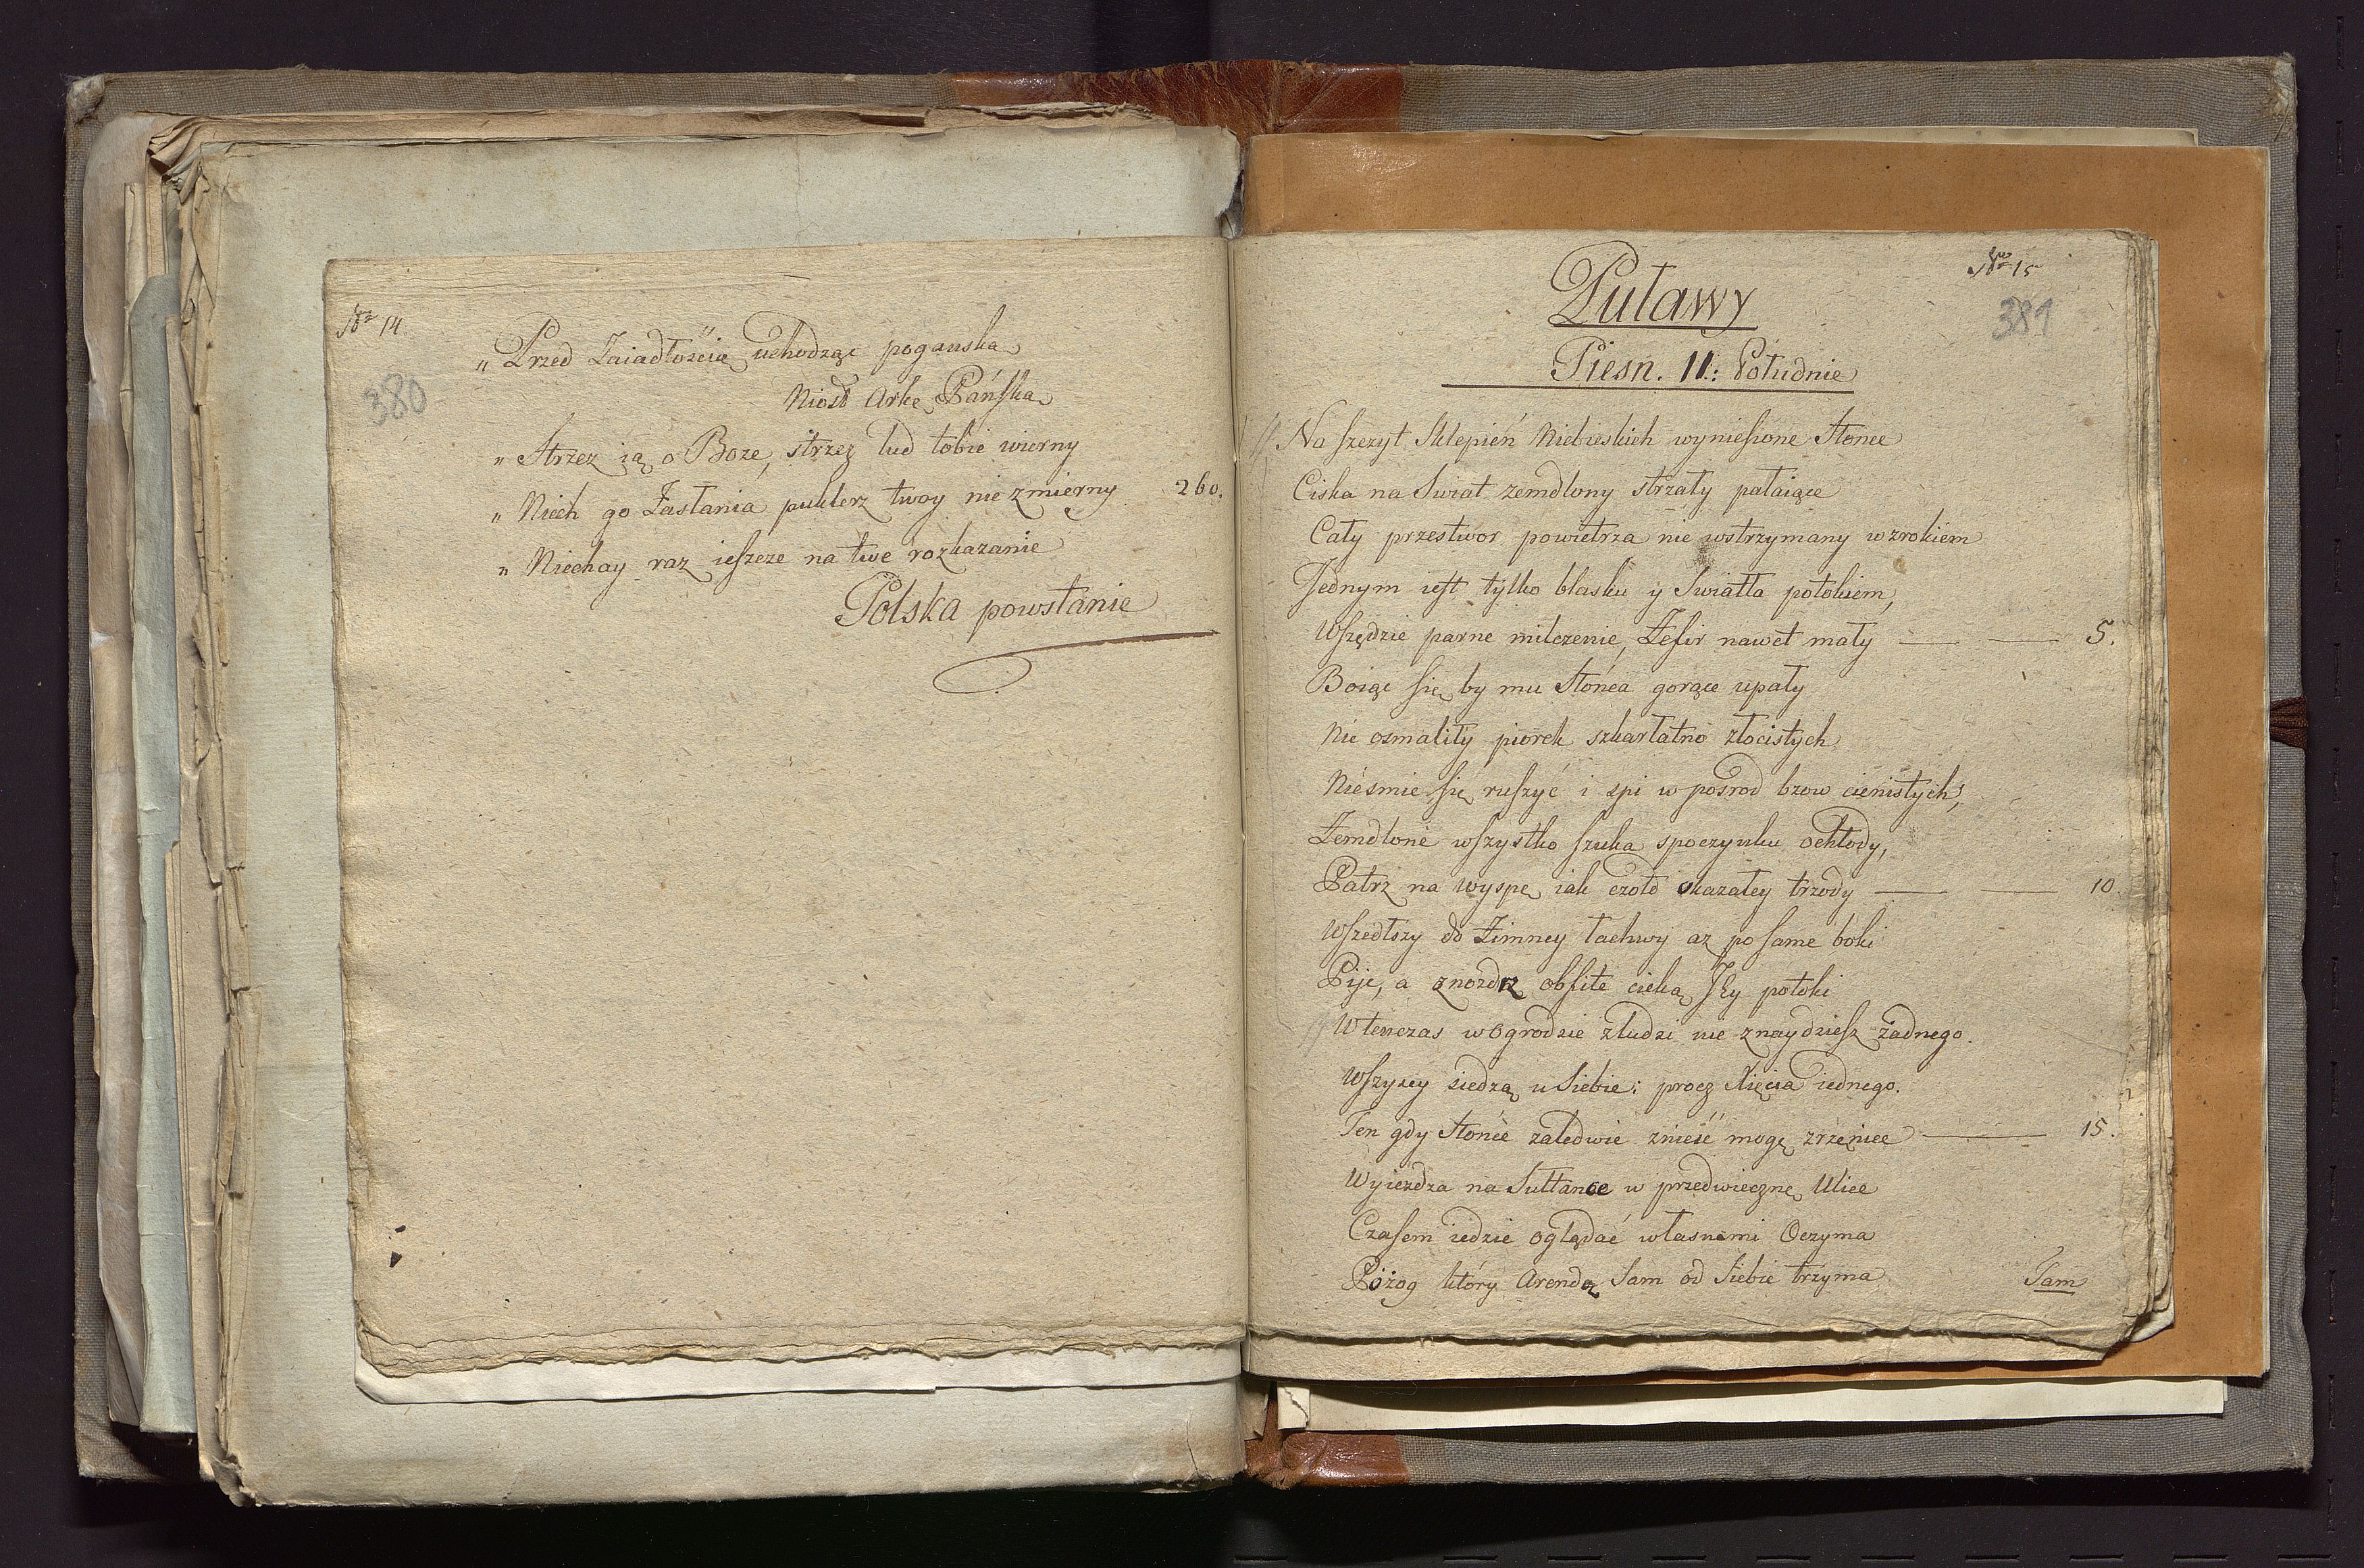 Nro 14.
380
„ Przed Zaiadłością uchodząc poganską
Niosł Arkę Pańſką
„ Strzez ią o Boze, strzeż lud tobie wierny
„ Niech go Zasłania puklerz twoy nie zmierny 260.
„ Niechay raz ieſzcze na twe rozkazanie
Polska powstanie
Nro 15
389
Puławy
Piesn. II: Południe
Na ſzczyt Sklepień Niebieskich wynieſione Słonce
Ciska na Swiat zemdlony strzały pałaiące
Cały przestwor powietrza nie wstrzymany wzrokiem
Jednym ieſt tylko blasku y Swiatła potokiem,
Wſzędzie parne milczenie, Zefir nawet mały 5.
Boiąc ſię by mu Słońca gorące upały
Nie osmaliły piorek szkarłatno złocistych
Nieśmie ſię ruſzyć i spi w pośrod bzow cienistych;
Zemdlone wſzystko ſzuka spoczynku ochłody,
Patrz na wyspę iak czoło okazałey trzody 10
Wſzedłszy do Zimney łachwy az po same boki
Pije, a z nozdrz obfite cieką Jey potoki
Wtenczas w Ogrodzie z ludzi nie znaydzieſz żadnego.
Wſzyscy siedzą u Siebie: procz Xięcia iednego.
Ten gdy Słonce zaledwie znieść mogą zrzenice 15.
Wyiezdza na Sułtance w przedwieczną Ulice
Czaſem iedzie oglądać własnemi Oczyma
Pożog który Arendą Sam od Siebie trzyma
Tam